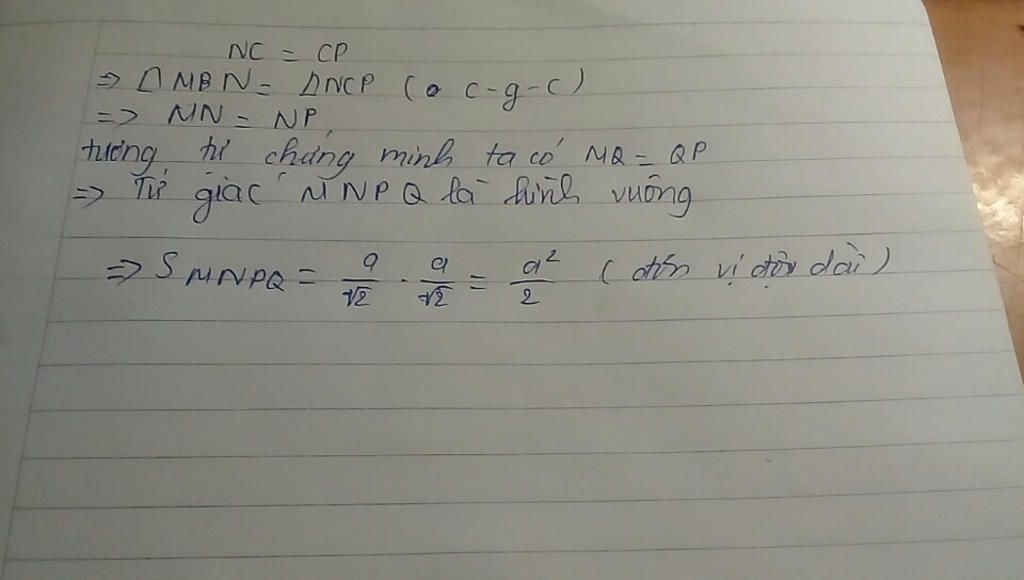 NC = CP
=> ΔMBN = ΔNCP (c-g-c)
=> MN = NP
tương tự chứng minh ta có MQ = QP
=> Tứ giác MNPQ là hình vuông
=> S MNPQ = a/√2 . a/√2 = a²/2 (đơn vị độ dài)